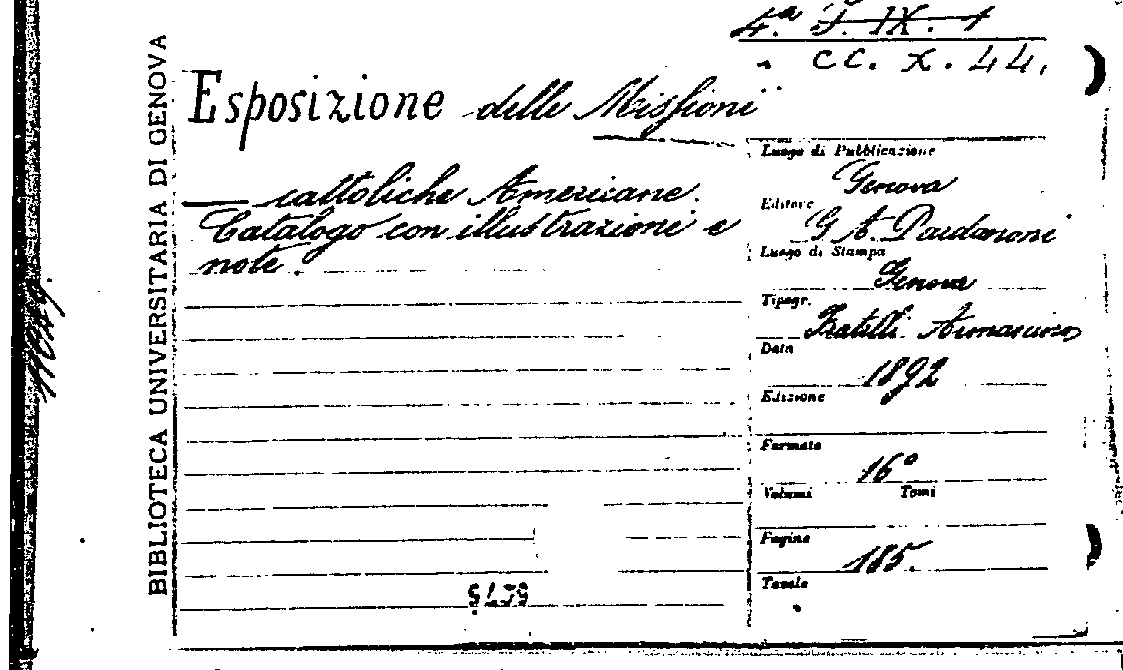 4.ª J. IX. 1
CC. X. 44.
Esposizione delle Missioni
cattoliche Americane.
Catalogo con illustrazioni e
note.
Luogo di Pubblicazione
Genova
Editore
G. A. Pardanoni
Luogo di Stampa
Genova
Tipogr.
Fratelli Armanino
Data
1892
Edizione
Formato
16º
Volumi Tomi
Pagine
185.
Tavole
BIBLIOTECA UNIVERSITARIA DI GENOVA